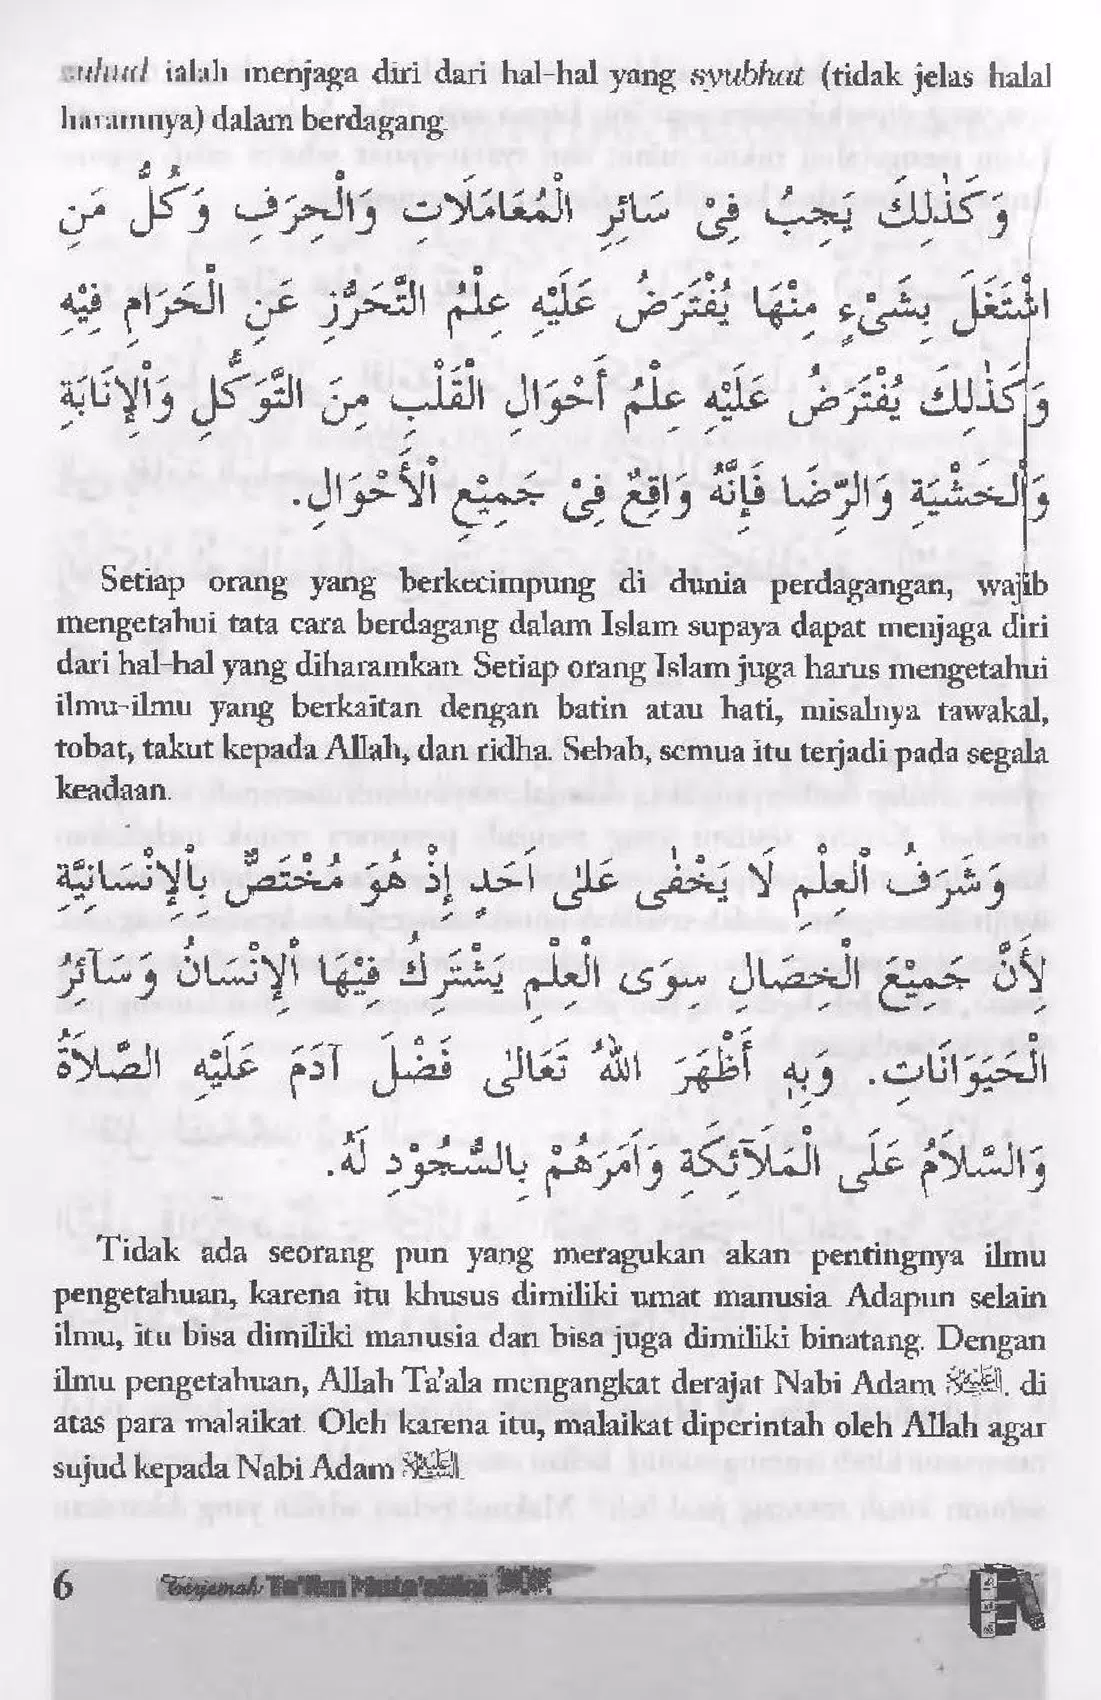 zuhud ialah menjaga diri dari hal-hal yang syubhat (tidak jelas halal
haramnya) dalam berdagang.
وَكَذٰلِكَ يَجِبُ فِىْ سَائِرِ الْمُعَامَلَاتِ وَالْحِرَفِ وَكُلُّ مَنِ
اشْتَغَلَ بِشَىْءٍ مِنْهَا يُفْتَرَضُ عَلَيْهِ عِلْمُ التَّحَرُّزِ عَنِ الْحَرَامِ فِيْهِ
وَكَذٰلِكَ يُفْتَرَضُ عَلَيْهِ عِلْمُ أَحْوَالِ الْقَلْبِ مِنَ التَّوَكُّلِ وَاْلإِنَابَةِ
وَالْخَشْيَةِ وَالرِّضَا فَإِنَّهُ وَاقِعٌ فِىْ جَمِيْعِ اْلأَحْوَالِ.
Setiap orang yang berkecimpung di dunia perdagangan, wajib
mengetahui tata cara berdagang dalam Islam supaya dapat menjaga diri
dari hal-hal yang diharamkan. Setiap orang Islam juga harus mengetahui
ilmu-ilmu yang berkaitan dengan batin atau hati, misalnya tawakal,
tobat, takut kepada Allah, dan ridha. Sebab, semua itu terjadi pada segala
keadaan.
وَشَرَفُ الْعِلْمِ لَا يَخْفٰى عَلىٰ اَحَدٍ إِذْ هُوَ مُخْتَصٌّ بِاْلإِنْسَانِيَّةِ
لِأَنَّ جَمِيْعَ الْخِصَالِ سِوَى الْعِلْمِ يَشْتَرِكُ فِيْهَا اْلإِنْسَانُ وَسَآئِرُ
الْحَيَوَانَاتِ. وَبِهِ أَظْهَرَ اللهُ تَعَالىٰ فَضْلَ آدَمَ عَلَيْهِ الصَّلاَةُ
وَالسَّلاَمُ عَلَى الْمَلَآئِكَةِ وَاَمَرَهُمْ بِالسُّجُوْدِ لَهُ.
Tidak ada seorang pun yang meragukan akan pentingnya ilmu
pengetahuan, karena itu khusus dimiliki umat manusia. Adapun selain
ilmu, itu bisa dimiliki manusia dan bisa juga dimiliki binatang. Dengan
ilmu pengetahuan, Allah Ta'ala mengangkat derajat Nabi Adam . di
atas para malaikat. Oleh karena itu, malaikat diperintah oleh Allah agar
sujud kepada Nabi Adam .
6 Terjemah Ta'lim Muta'allim